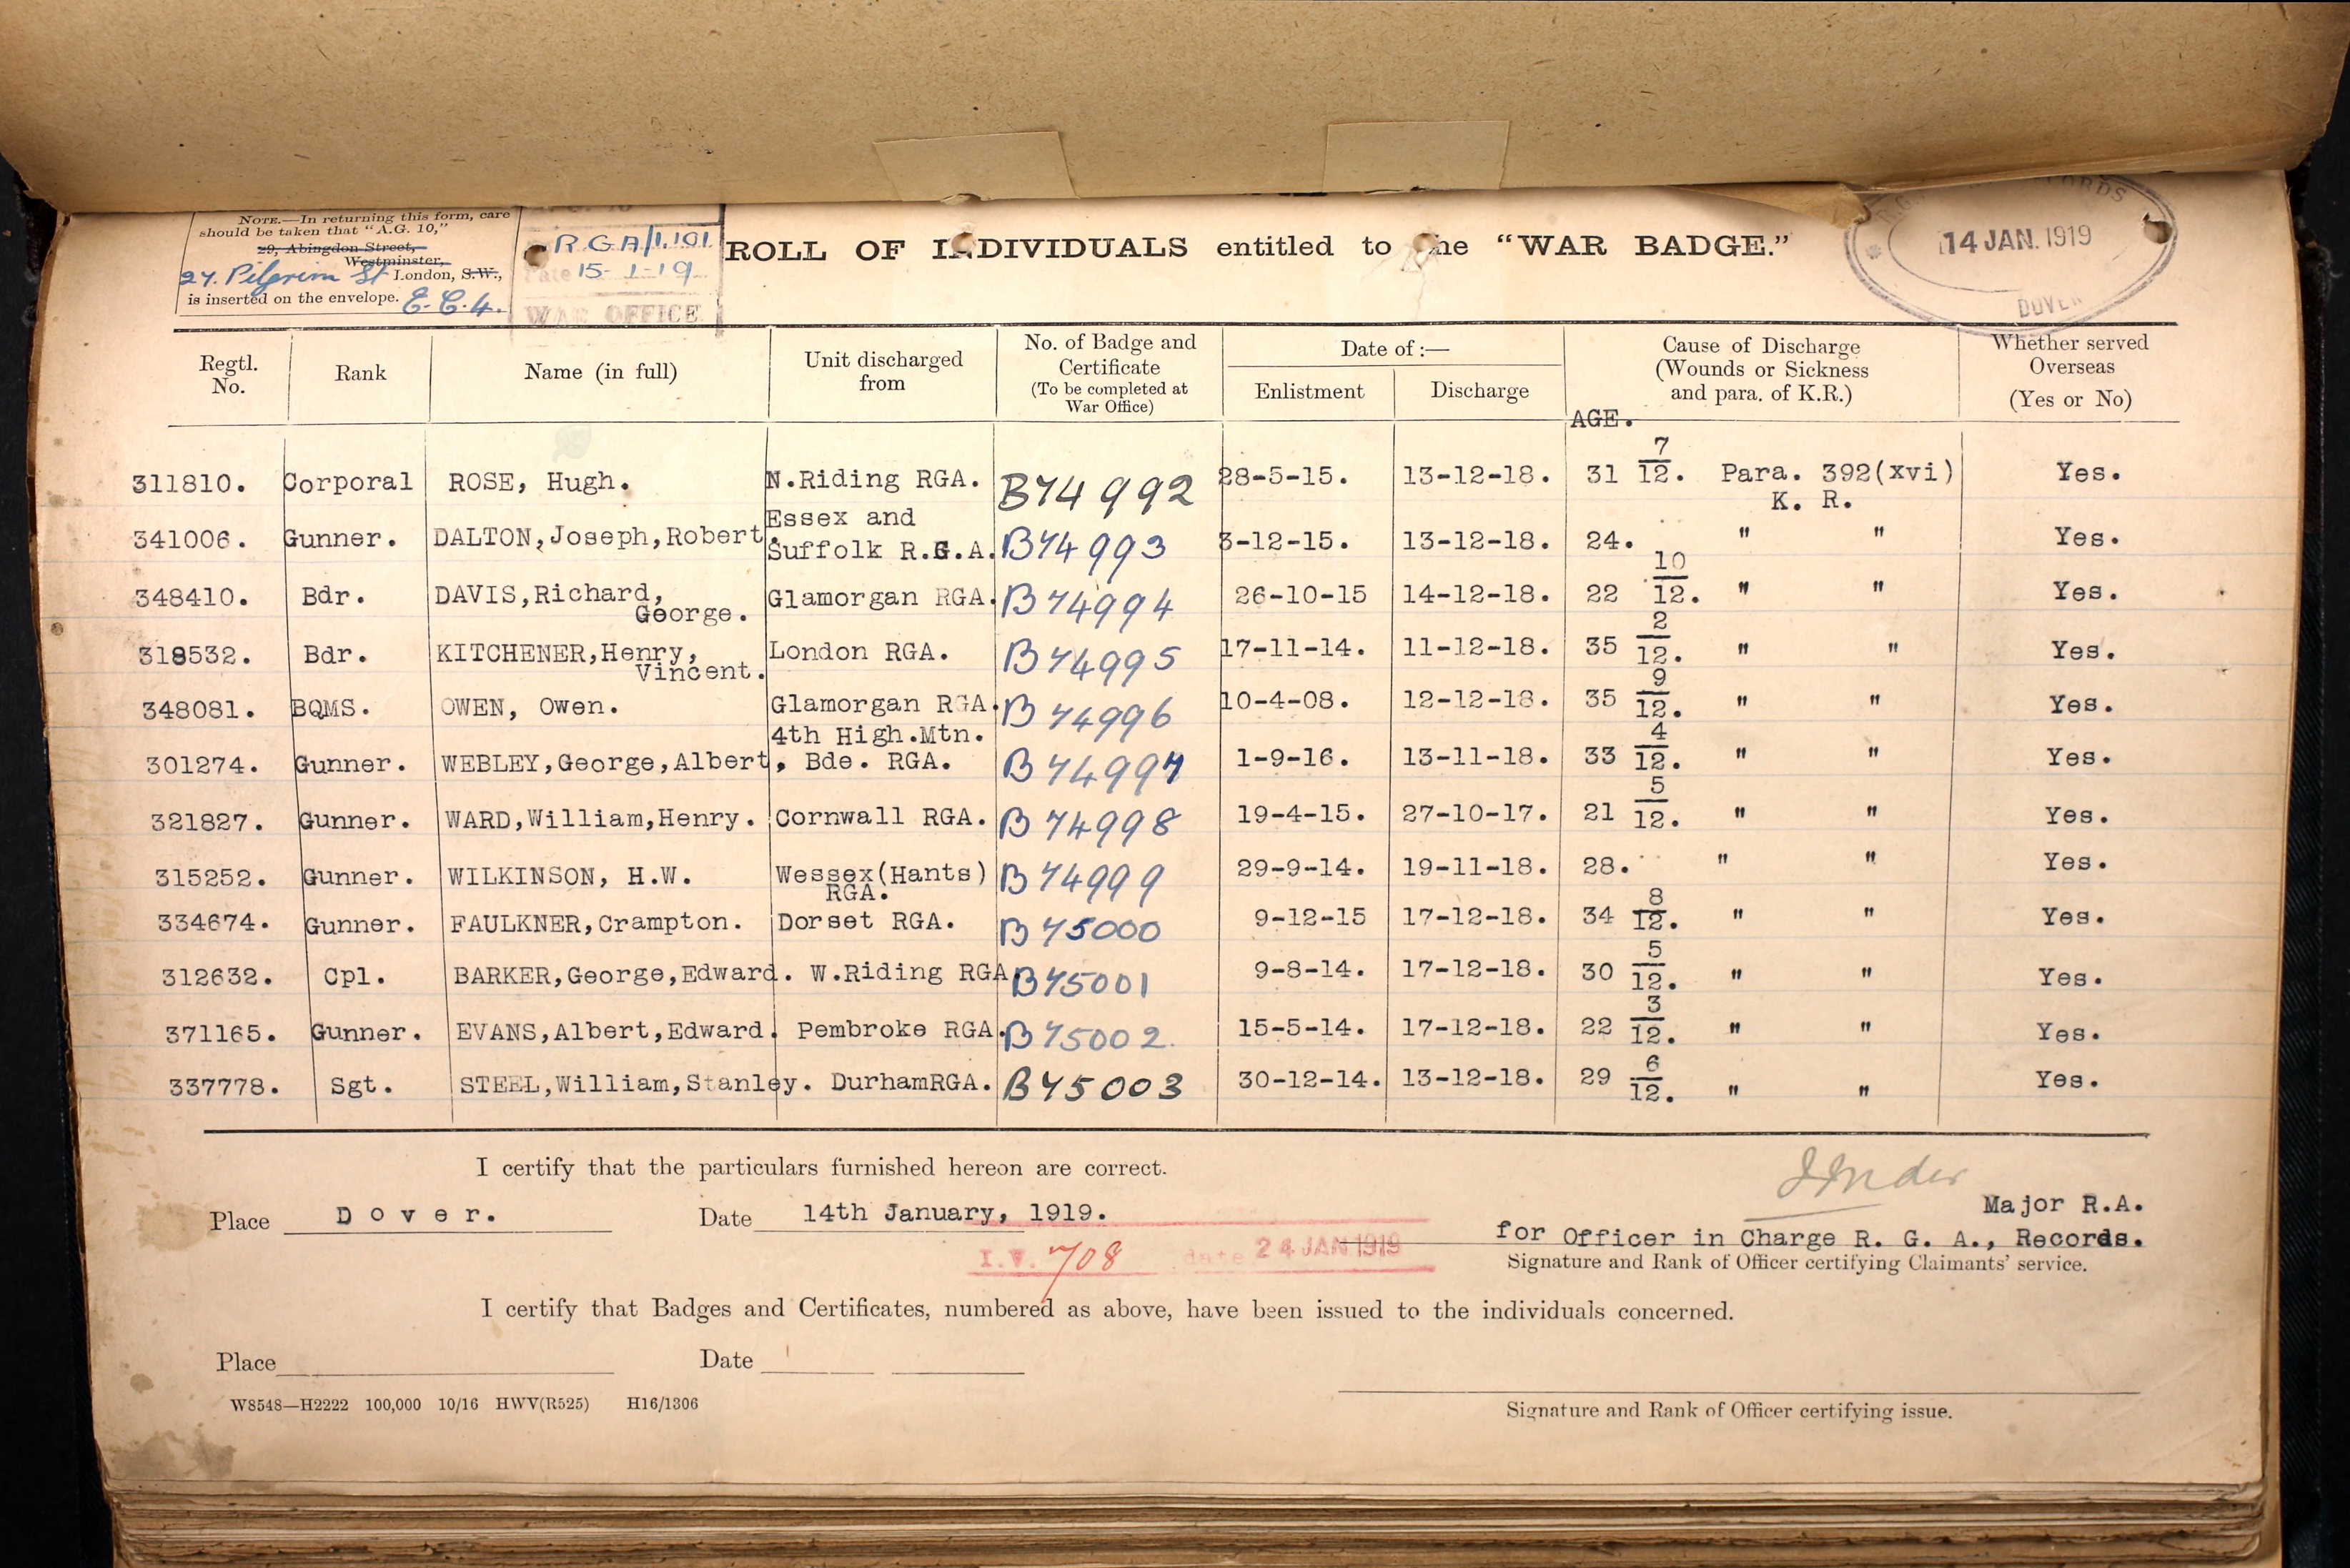 NOTE.—In returning this form, care
should be taken that "A.G. 10,"
29, Abingdon Street,
Westminster,
27. Pilgrim St London, S.W.,
is inserted on the envelope. E.C.4.
R.G.A/1.101
Date 15-1-19
WAR OFFICE
ROLL OF INDIVIDUALS entitled to the "WAR BADGE."
14 JAN. 1919
DOVER
Regtl. No. Rank Name (in full) Unit discharged from No. of Badge and Certificate (To be completed at War Office) Date of:— Enlistment Discharge Cause of Discharge (Wounds or Sickness and para. of K.R.) Whether served Overseas (Yes or No)
AGE.
311810. Corporal ROSE, Hugh. N.Riding RGA. B74992 28-5-15. 13-12-18. 31 7/12. Para. 392(xvi) K. R. Yes.
341006. Gunner. DALTON,Joseph,Robert. Essex and Suffolk R.G.A. B74993 3-12-15. 13-12-18. 24. " " Yes.
348410. Bdr. DAVIS,Richard, George. Glamorgan RGA. B74994 26-10-15 14-12-18. 22 10/12. " " Yes.
318532. Bdr. KITCHENER,Henry, Vincent. London RGA. B74995 17-11-14. 11-12-18. 35 2/12. " " Yes.
348081. BQMS. OWEN, Owen. Glamorgan RGA. B74996 10-4-08. 12-12-18. 35 9/12. " " Yes.
301274. Gunner. WEBLEY,George,Albert, 4th High.Mtn. Bde. RGA. B74997 1-9-16. 13-11-18. 33 4/12. " " Yes.
321827. Gunner. WARD,William,Henry. Cornwall RGA. B74998 19-4-15. 27-10-17. 21 5/12. " " Yes.
315252. Gunner. WILKINSON, H.W. Wessex(Hants) RGA. B74999 29-9-14. 19-11-18. 28. " " Yes.
334674. Gunner. FAULKNER,Crampton. Dorset RGA. B75000 9-12-15 17-12-18. 34 8/12. " " Yes.
312632. Cpl. BARKER,George,Edward. W.Riding RGA. B75001 9-8-14. 17-12-18. 30 5/12. " " Yes.
371165. Gunner. EVANS,Albert,Edward. Pembroke RGA. B75002. 15-5-14. 17-12-18. 22 3/12. " " Yes.
337778. Sgt. STEEL,William,Stanley. DurhamRGA. B75003 30-12-14. 13-12-18. 29 6/12. " " Yes.
I certify that the particulars furnished hereon are correct.
Place Dover. Date 14th January, 1919.
Major R.A.
for Officer in Charge R. G. A., Records.
I.V. 708 date 24 JAN 1919
Signature and Rank of Officer certifying Claimants' service.
I certify that Badges and Certificates, numbered as above, have been issued to the individuals concerned.
Place Date
W8548—H2222 100,000 10/16 HWV(R525) H16/1306
Signature and Rank of Officer certifying issue.